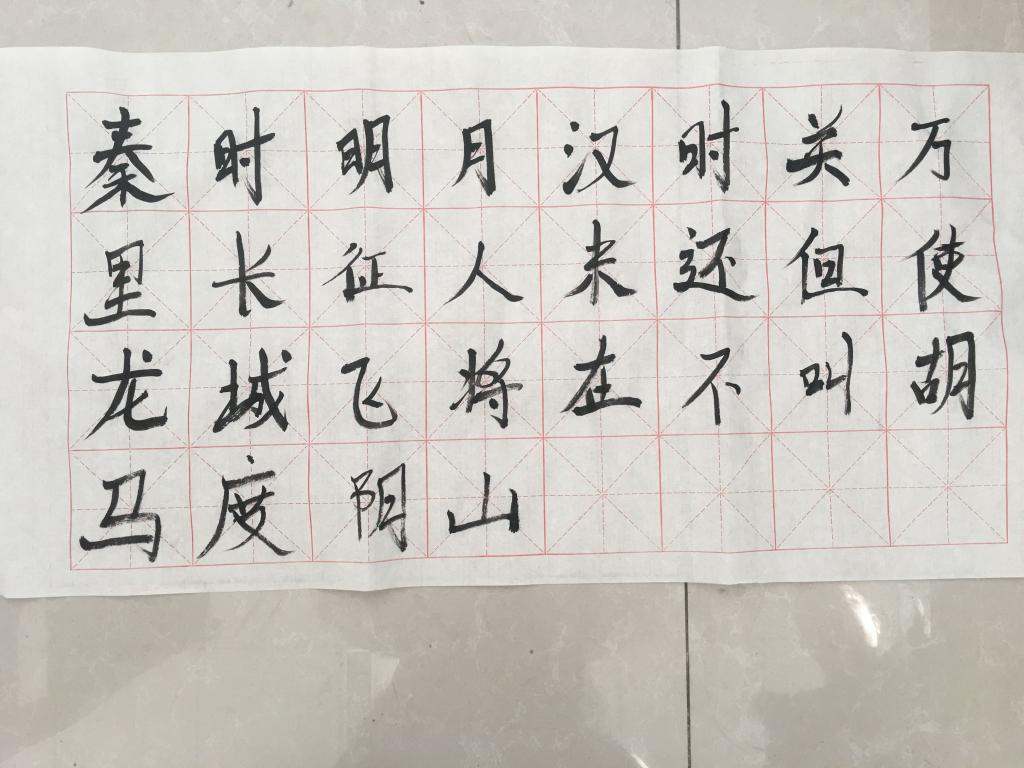 秦时明月汉时关万
里长征人未还但使
龙城飞将在不叫胡
马度阴山